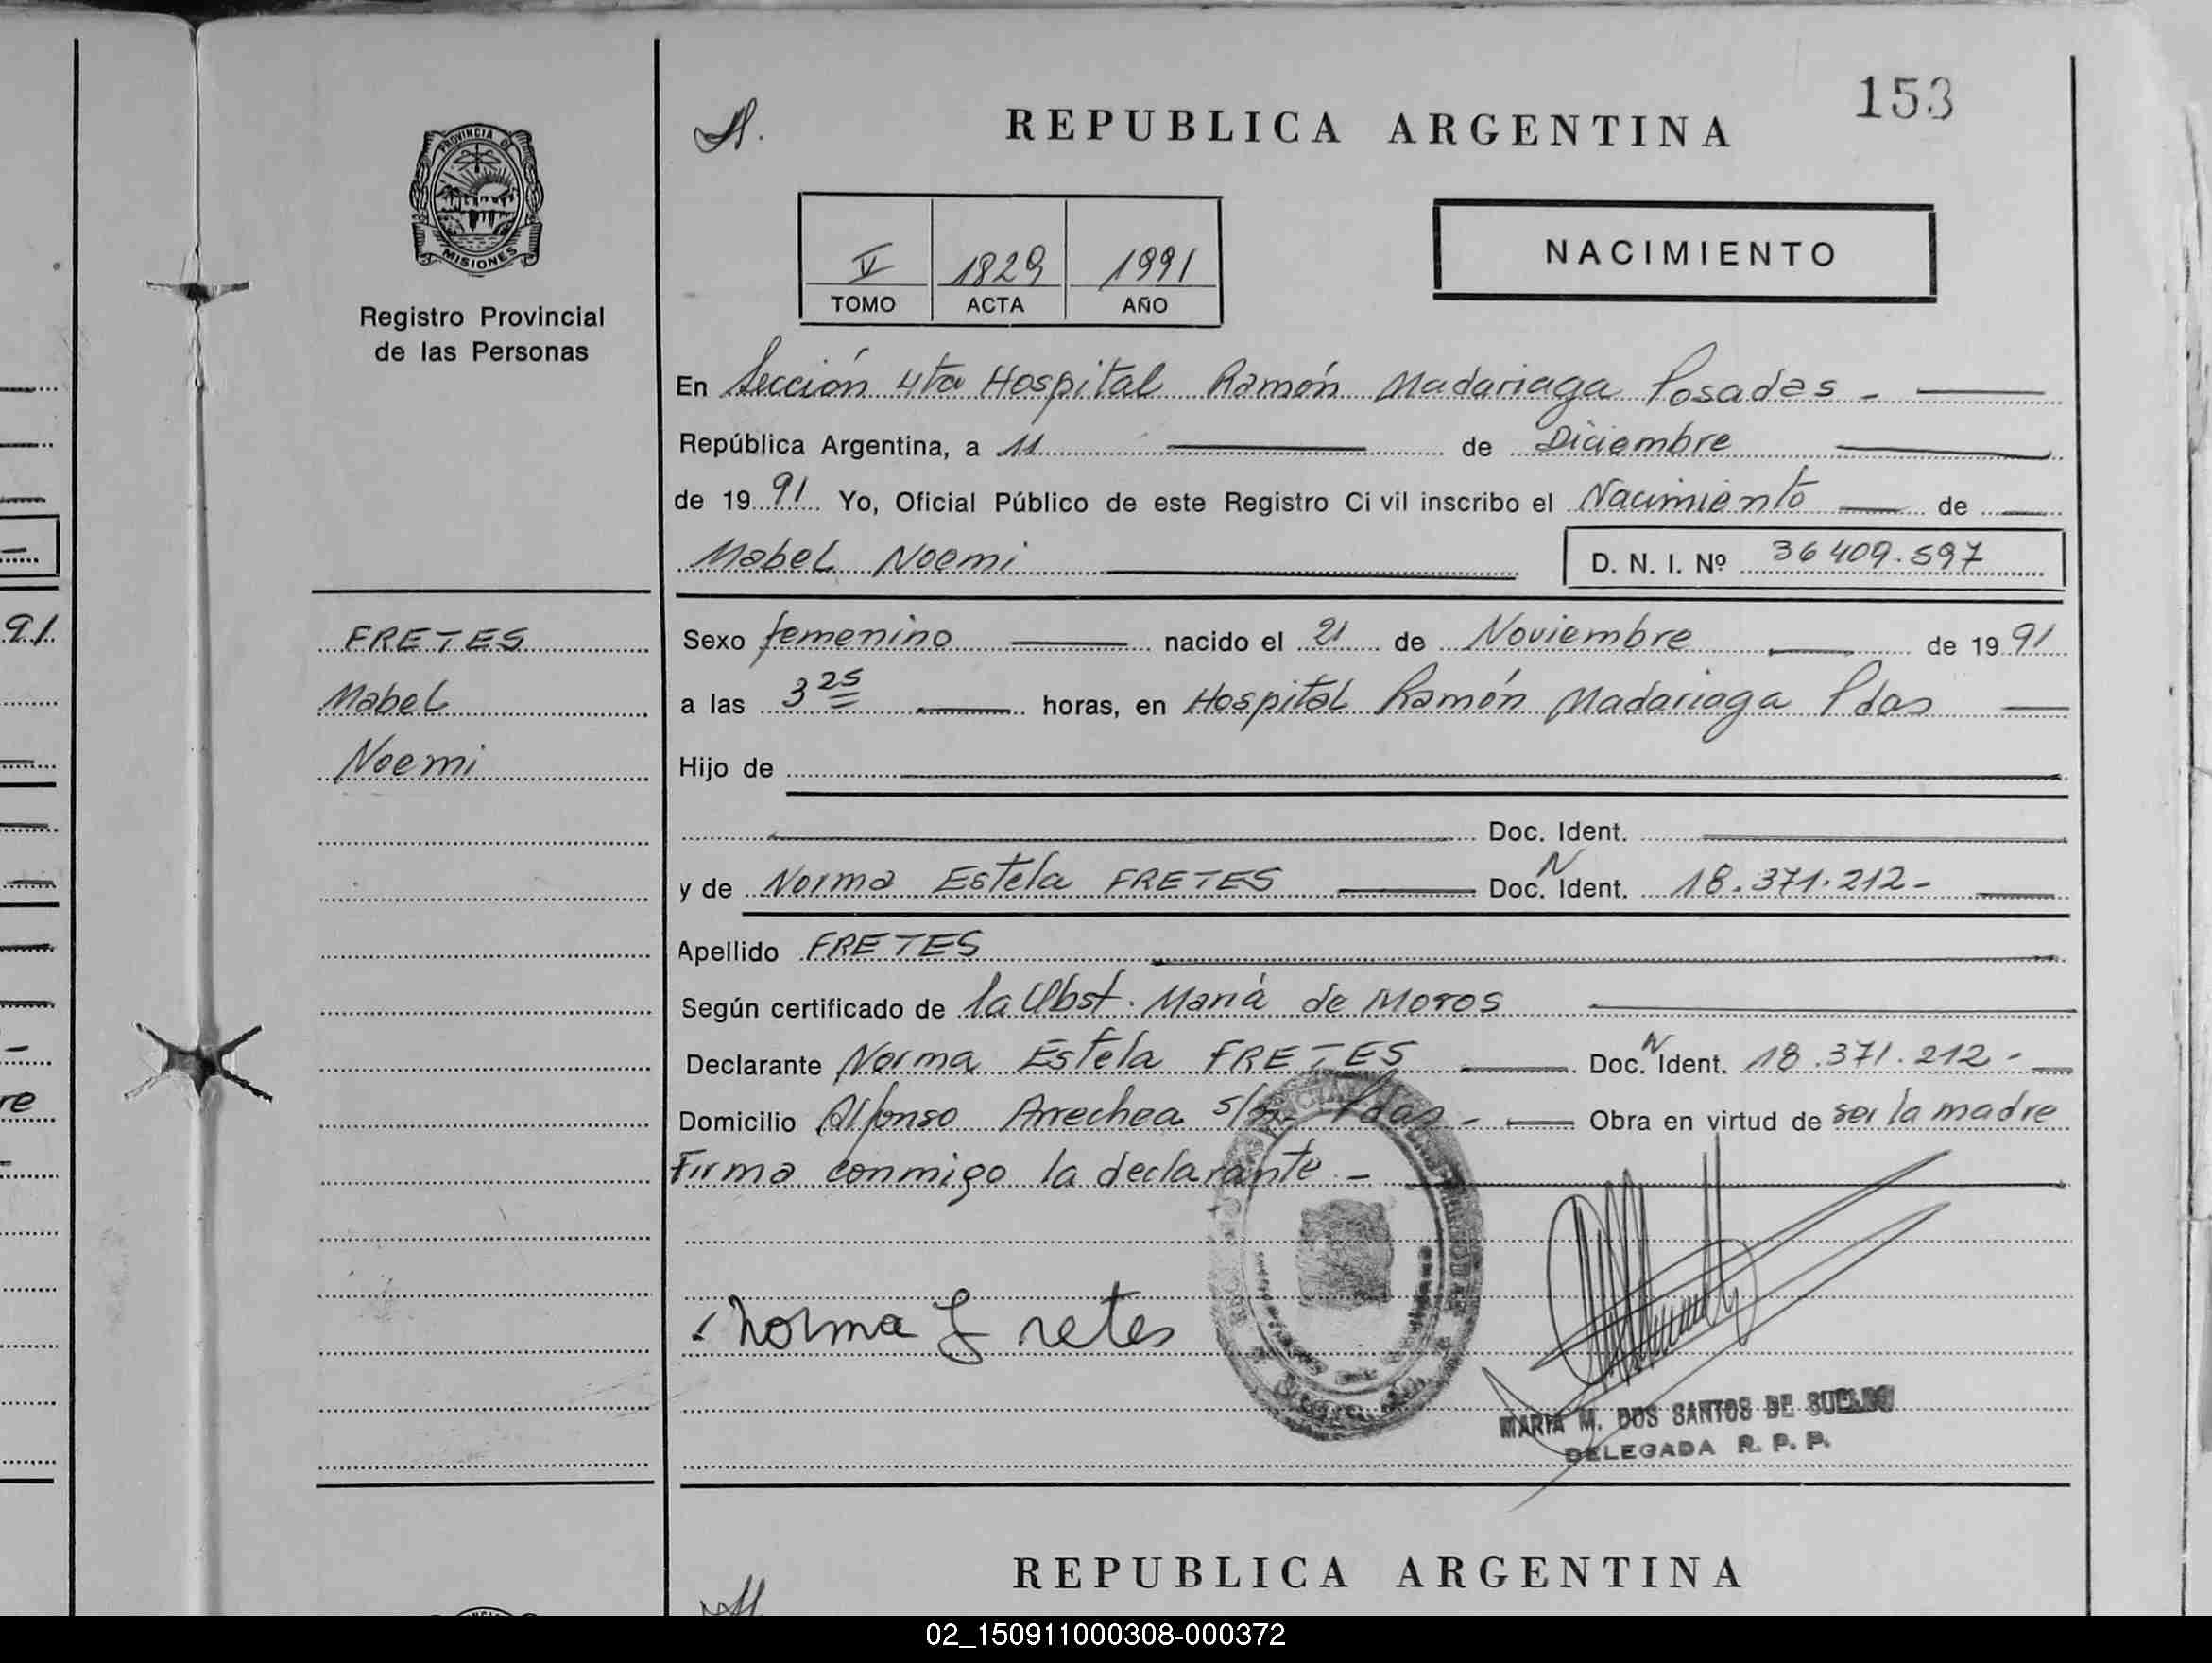 153
REPUBLICA ARGENTINA
PROVINCIA DE
MISIONES
Registro Provincial
de las Personas
V 1829 1991
TOMO ACTA AÑO
NACIMIENTO
En Sección 4ta Hospital Ramón Madariaga Posadas -
República Argentina, a 11 de Diciembre
de 19 91 Yo, Oficial Público de este Registro Ci vil inscribo el Nacimiento de
Mabel Noemi D. N. I. Nº 36409.597
91
FRETES
Mabel
Noemi
Sexo femenino nacido el 21 de Noviembre de 19 91
a las 3 25 horas, en Hospital Ramón Madariaga Pdas
Hijo de
Doc. Ident.
y de Norma Estela FRETES Doc. N Ident. 18.371.212-
Apellido FRETES
Según certificado de la Obst. Mariá de Moros
Declarante Norma Estela FRETES Doc. N Ident. 18.371.212-
re
Domicilio Alfonso Arrechea s/n Pdas - Obra en virtud de ser la madre
Firma conmigo la declarante -
Norma Fretes
MARIA M. DOS SANTOS DE
DELEGADA R. P. P.
REPUBLICA ARGENTINA
02_150911000308-000372